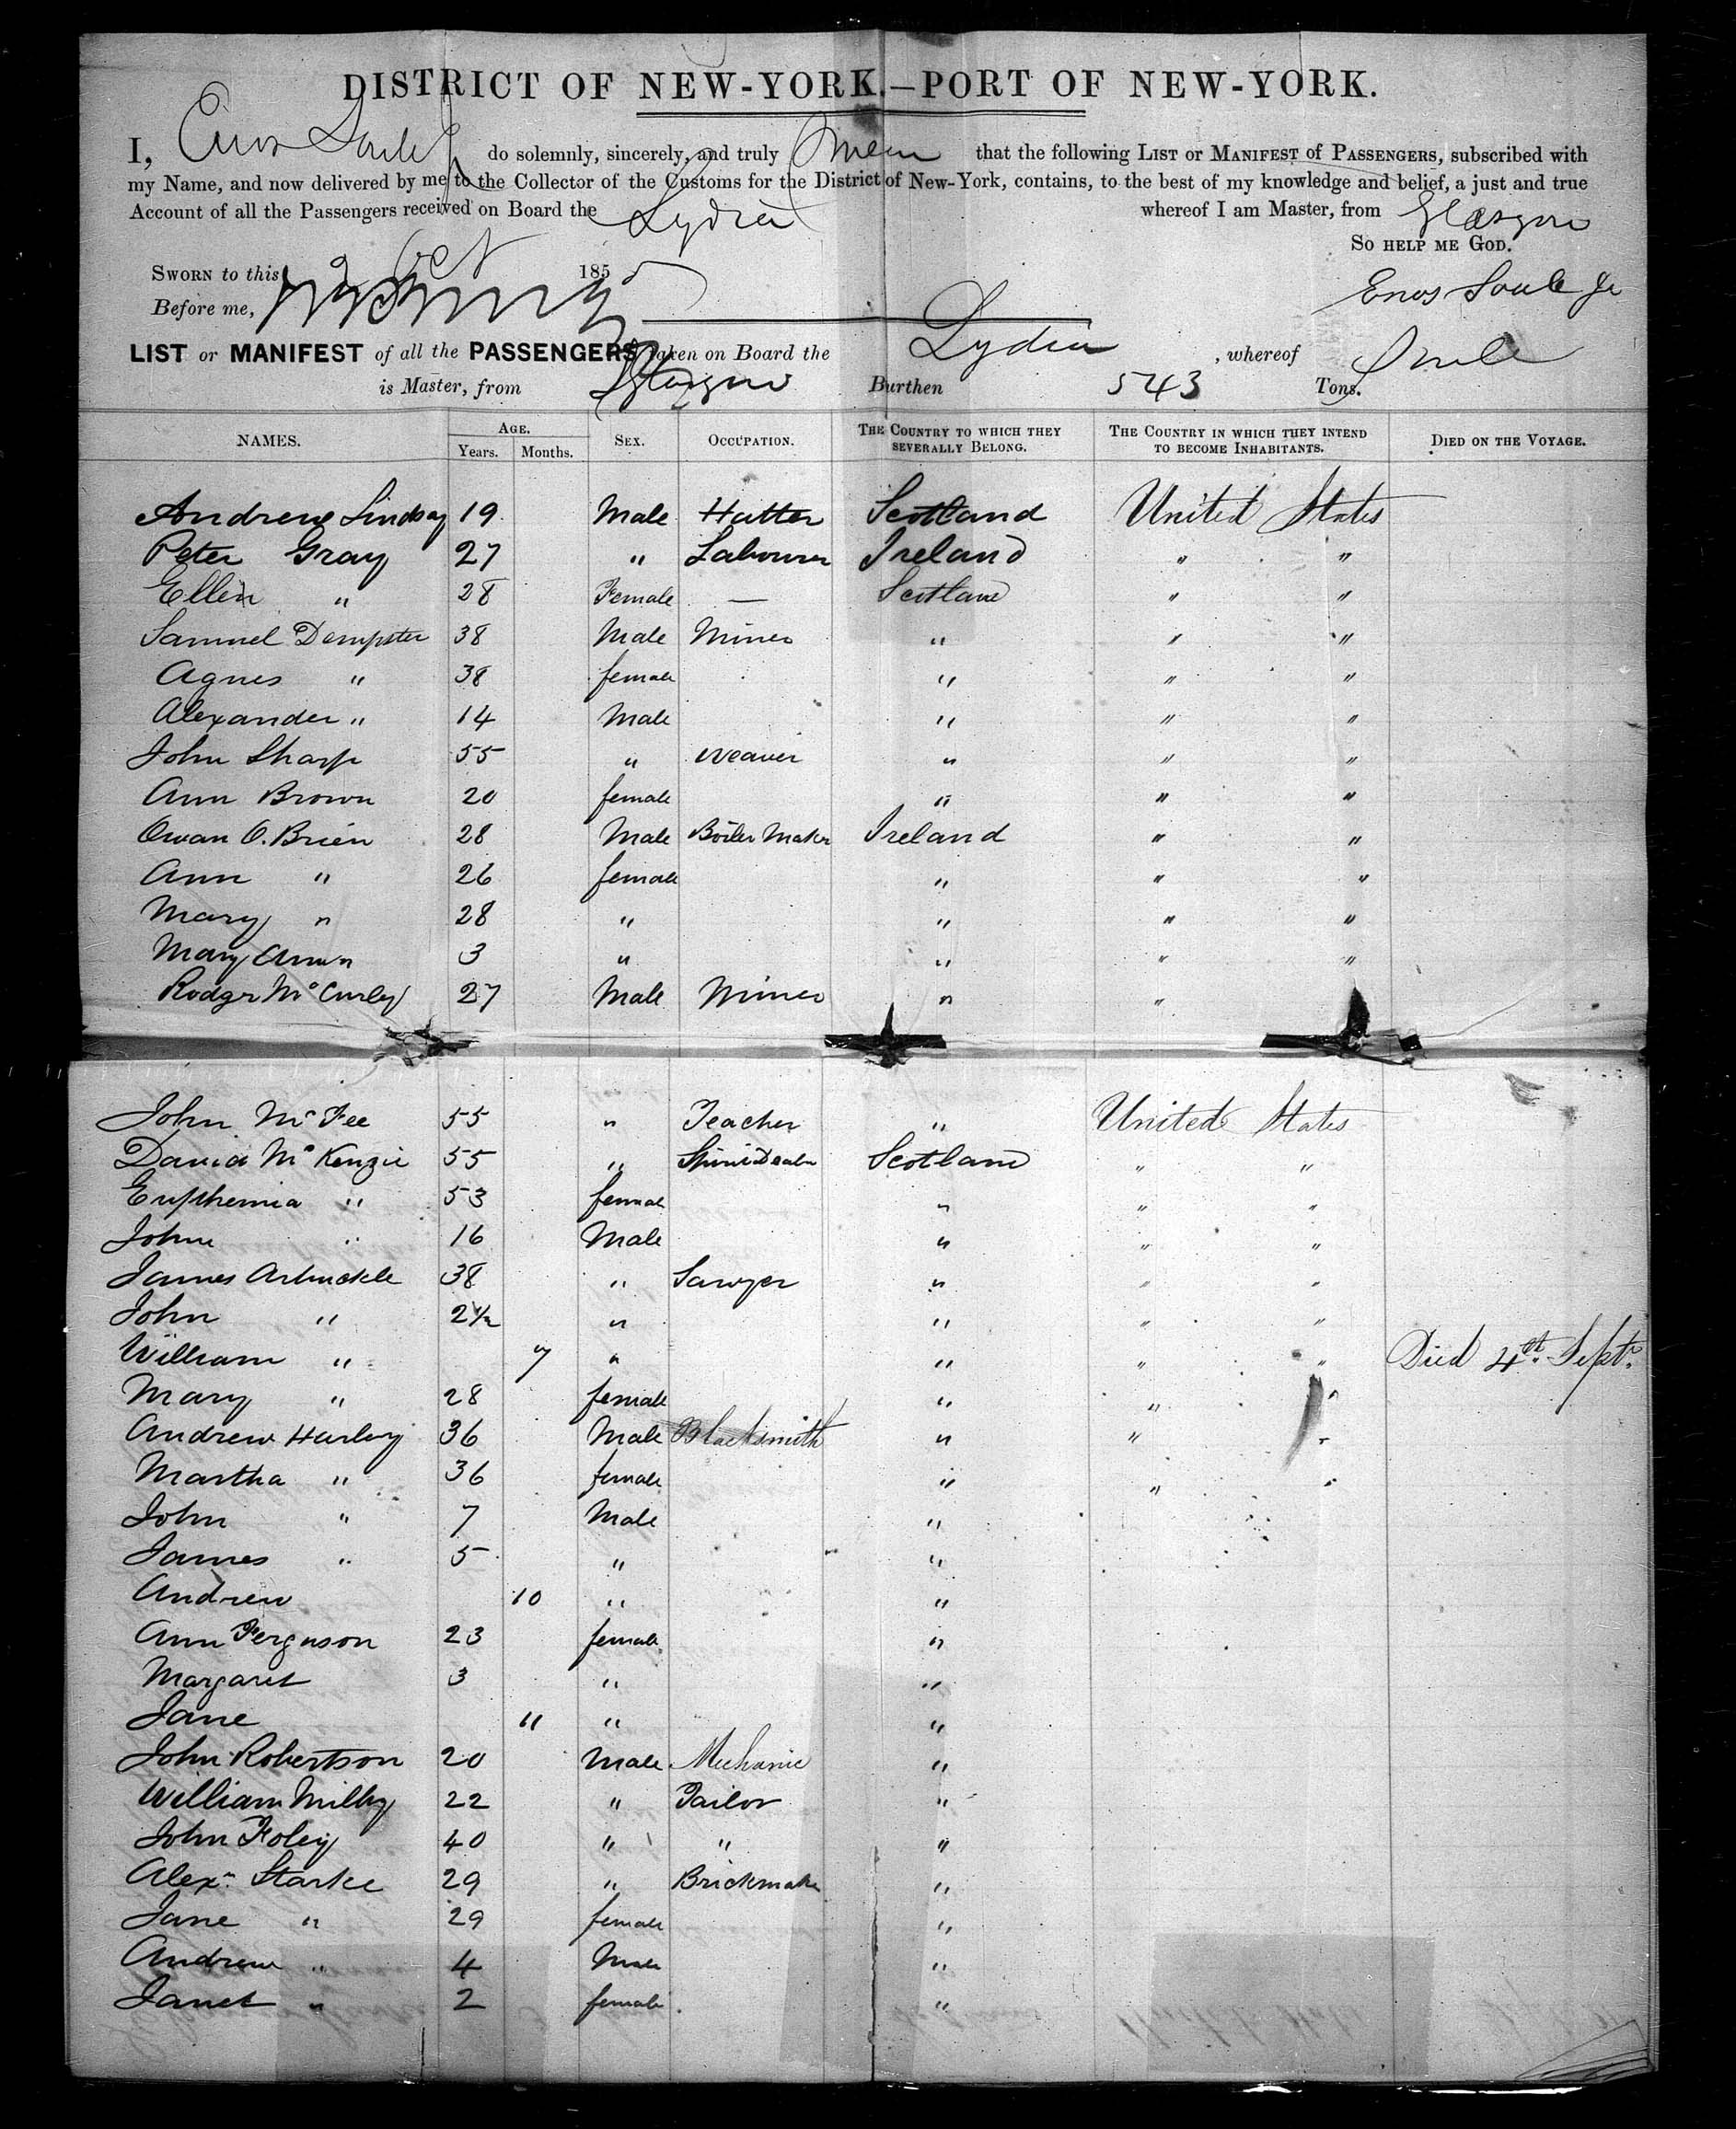 DISTRICT OF NEW-YORK.—PORT OF NEW-YORK.
I, Enos Soule do solemnly, sincerely, and truly Swear that the following LIST or MANIFEST of PASSENGERS, subscribed with
my Name, and now delivered by me to the Collector of the Customs for the District of New-York, contains, to the best of my knowledge and belief, a just and true
Account of all the Passengers received on Board the Lydia whereof I am Master, from Glasgow
SO HELP ME GOD.
SWORN to this 2 Oct 185
Before me,
Enos Soule Jr
LIST or MANIFEST of all the PASSENGERS taken on Board the Lydia , whereof Soule
is Master, from Glasgow Burthen 543 Tons.
NAMES. AGE. SEX. OCCUPATION. THE COUNTRY TO WHICH THEY SEVERALLY BELONG. THE COUNTRY IN WHICH THEY INTEND TO BECOME INHABITANTS. DIED ON THE VOYAGE.
Years. Months.
Andrew Lindsay 19 Male Hatter Scotland United States
Peter Gray 27 " Labourer Ireland " "
Ellen " 28 Female — Scotland " "
Samuel Dempster 38 Male Miner " " "
Agnes " 38 female " " "
Alexander " 14 Male " " "
John Sharp 55 " Weaver " " "
Ann Brown 20 female " " "
Owan O. Brien 28 Male Boiler Maker Ireland " "
Ann " 26 female " " "
Mary " 28 " " " "
Mary Ann " 3 " " " "
Rodger McCurley 27 Male Miner " "
John McFee 55 " Teacher " United States
David McKenzie 55 " Spirit Dealer Scotland " "
Eupthemia " 53 female " " "
John " 16 Male " " "
James Arbuckle 38 " Sawyer " " "
John " 2½ " " " "
William " 7 " " " " Died 4th. Sept.
Mary " 28 female " " "
Andrew Hurley 36 Male Blacksmith " " "
Martha " 36 female " " "
John " 7 Male "
James " 5 " "
Andrew 10 " "
Ann Ferguson 23 female "
Margaret 3 " "
Jane 11 " "
John Robertson 20 Male Mechanic "
William 22 " Tailor "
John Foley 40 " " "
Alexr. Starke 29 " Brickmaker "
Jane " 29 female "
Andrew " 4 Male "
Janet " 2 female "